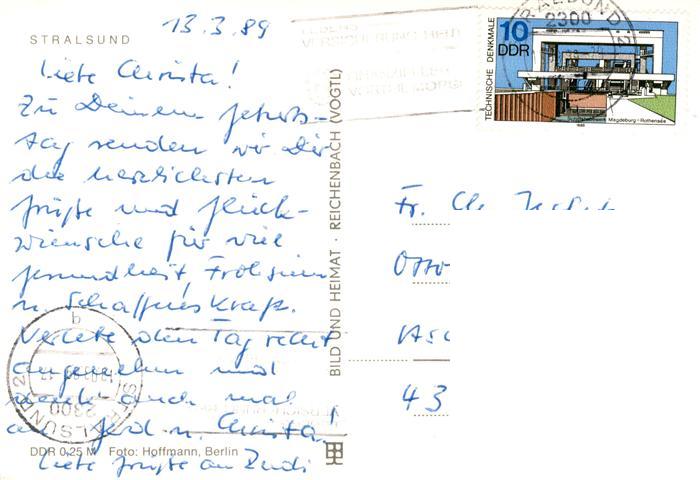 13.3.89
STRALSUND
Liebe Christa!
Zu Deinem Geburts-
tag senden wir Dir
die herzlichsten
Grüße und Glück-
wünsche für viel
Gesundheit, Frohsinn
u. Schaffenskraft.
Verlebe den Tag recht
angenehm und
denke auch mal
an Gerd u. Christa!
Liebe Grüße an Rudi
DDR 0,25 M Foto: Hoffmann, Berlin
BILD UND HEIMAT · REICHENBACH (VOGTL)
TECHNISCHE DENKMALE
10
DDR
Magdeburg-Rothensee
STRALSUND 2
2300
b
STRALSUND 2
2300
Fr. Ch
Otto-
43